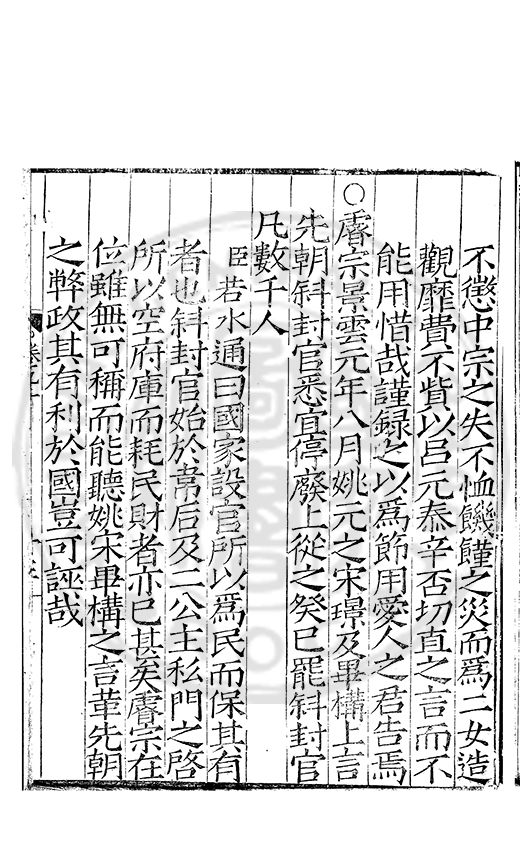 不懲中宗之失不恤饑饉之災而為二女造
觀靡費不貲以呂元泰辛否切直之言而不
能用惜哉謹録之以為節用愛人之君告焉
○睿宗景雲元年八月姚元之宋璟及畢構上言
先朝斜封官悉宜停廢上從之癸巳罷斜封官
凡數千人
臣若水通曰國家設官所以為民而保其有
者也斜封官始於韋后及二公主私門之啓
所以空府庫而耗民財者亦已甚矣睿宗在
位雖無可稱而能聽姚宋畢構之言革先朝
之弊政其有利於國豈可誣哉